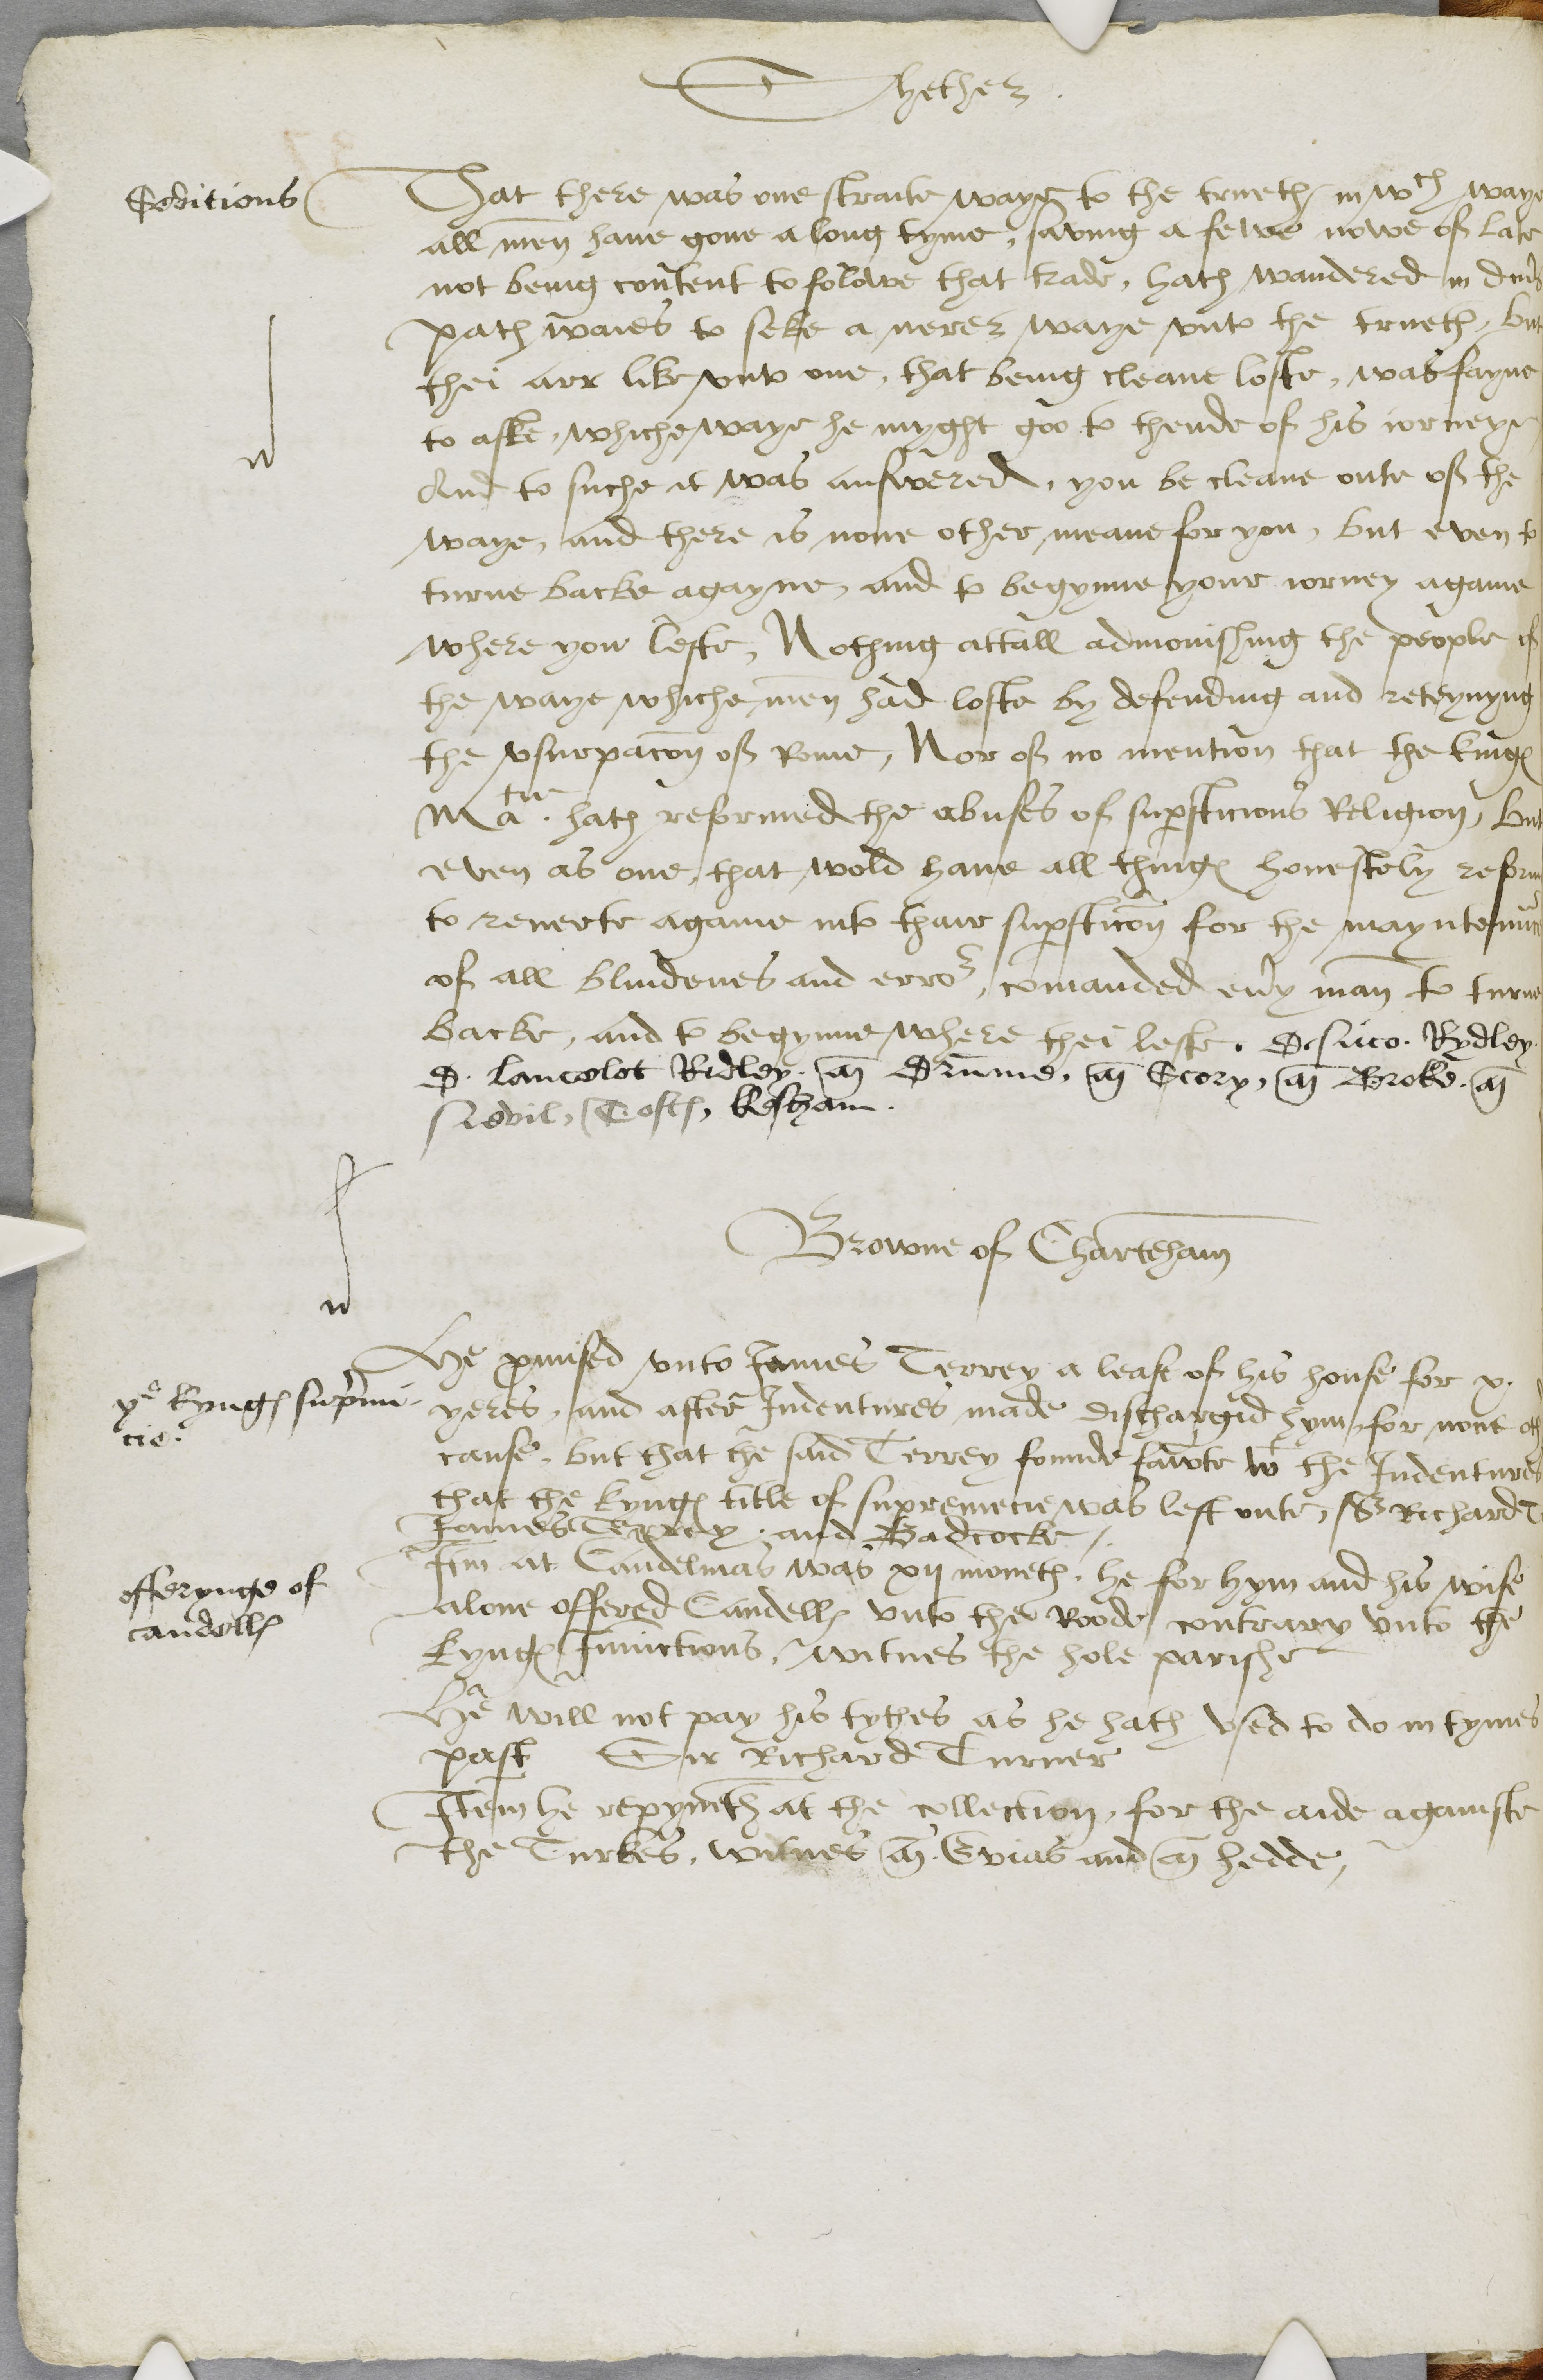 Thether
Seditious
That there was one straite waye to the trueth in wch waye
all men haue gone a long tyme, saving a fewe nowe of late
not being content to folowe that trade, hath wandered in diu's
path waies to seke a nerer waye vnto the trueth, but
thei arr like vnto one, that being cleane loste, was fayne
to aske, whiche waye he myght goo to thende of his iorneye
And to suche it was answered, you be cleane oute of the
waye, and there is none other meane for you, but even to
turne backe agayne, and to begynne your iorney againe
where you lefte, Nothing attall admonishing the people of
the waye whiche men had loste by defending and reteynyng
the vsurpacon of Rome, Nor of no mention that the kinges
Matie hath reformed the abuses of supersticious Religion, but
even as one, that wold haue all thinges honestely reform
to reuerte againe into thair supersticon for the mayntenunce
of all blindenes and erro^r, comanded eu'y man to turne
backe, and to begynne where thei lefte. D. Nico. Rydley.
D. Lancelot Ridley. M Drume, M Scory, M Broke. M
Nevil, Tofts, Kesham.
Browne of Charteham
ye kynges supremi-
cie.
He promised vnto James Terrey a lease of his house for x.
yeres, and after Indentures made dischargid hym, for none oth
cause, but that the said Terrey founde fawte wt the Indentures
that the kynges title of supremecie was left oute, Sr Richard T
James Terrey. and Badcocke
offerynge of
candells
Itm at Candelmas was xii moneth, he for hym and his wife
alone offered Candells vnto the Roode contrary vnto the
kynges Iniunctions, witnes the hole parishe
He will not pay his tythes as he hath vsed to do in tymes
past Sir Richard Turner
Item he repyneth at the collection, for the aide againste
the Turkes, witnes M. Evias and M hedde,